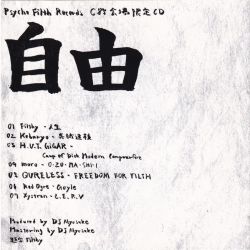 Psycho Filth Records C89会場限定CD
自由
01 Filthy - 人生
02 Kobaryo -
03 H.U.T. GIGAR -
Camp of Dick Modern Campanfire
04 moro - O-ZU-MA-SHI-!
05 GURELESS - FREEDOM FOR FILTH
06 Red Ogre - Goyle
07 Xystran - L.E.R.V
Produced by DJ Myosuke
Mastering by DJ Myosuke
Filthy